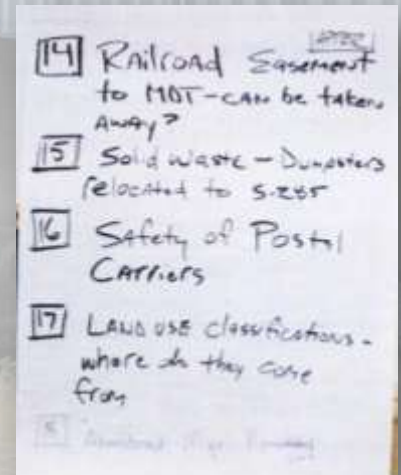 14 Railroad Easement
to MDT-can be taken
Away?
15 Solid waste - Dumpsters
relocated to S.285
16 Safety of Postal
Carriers
17 Land use classifications -
where do they come
from